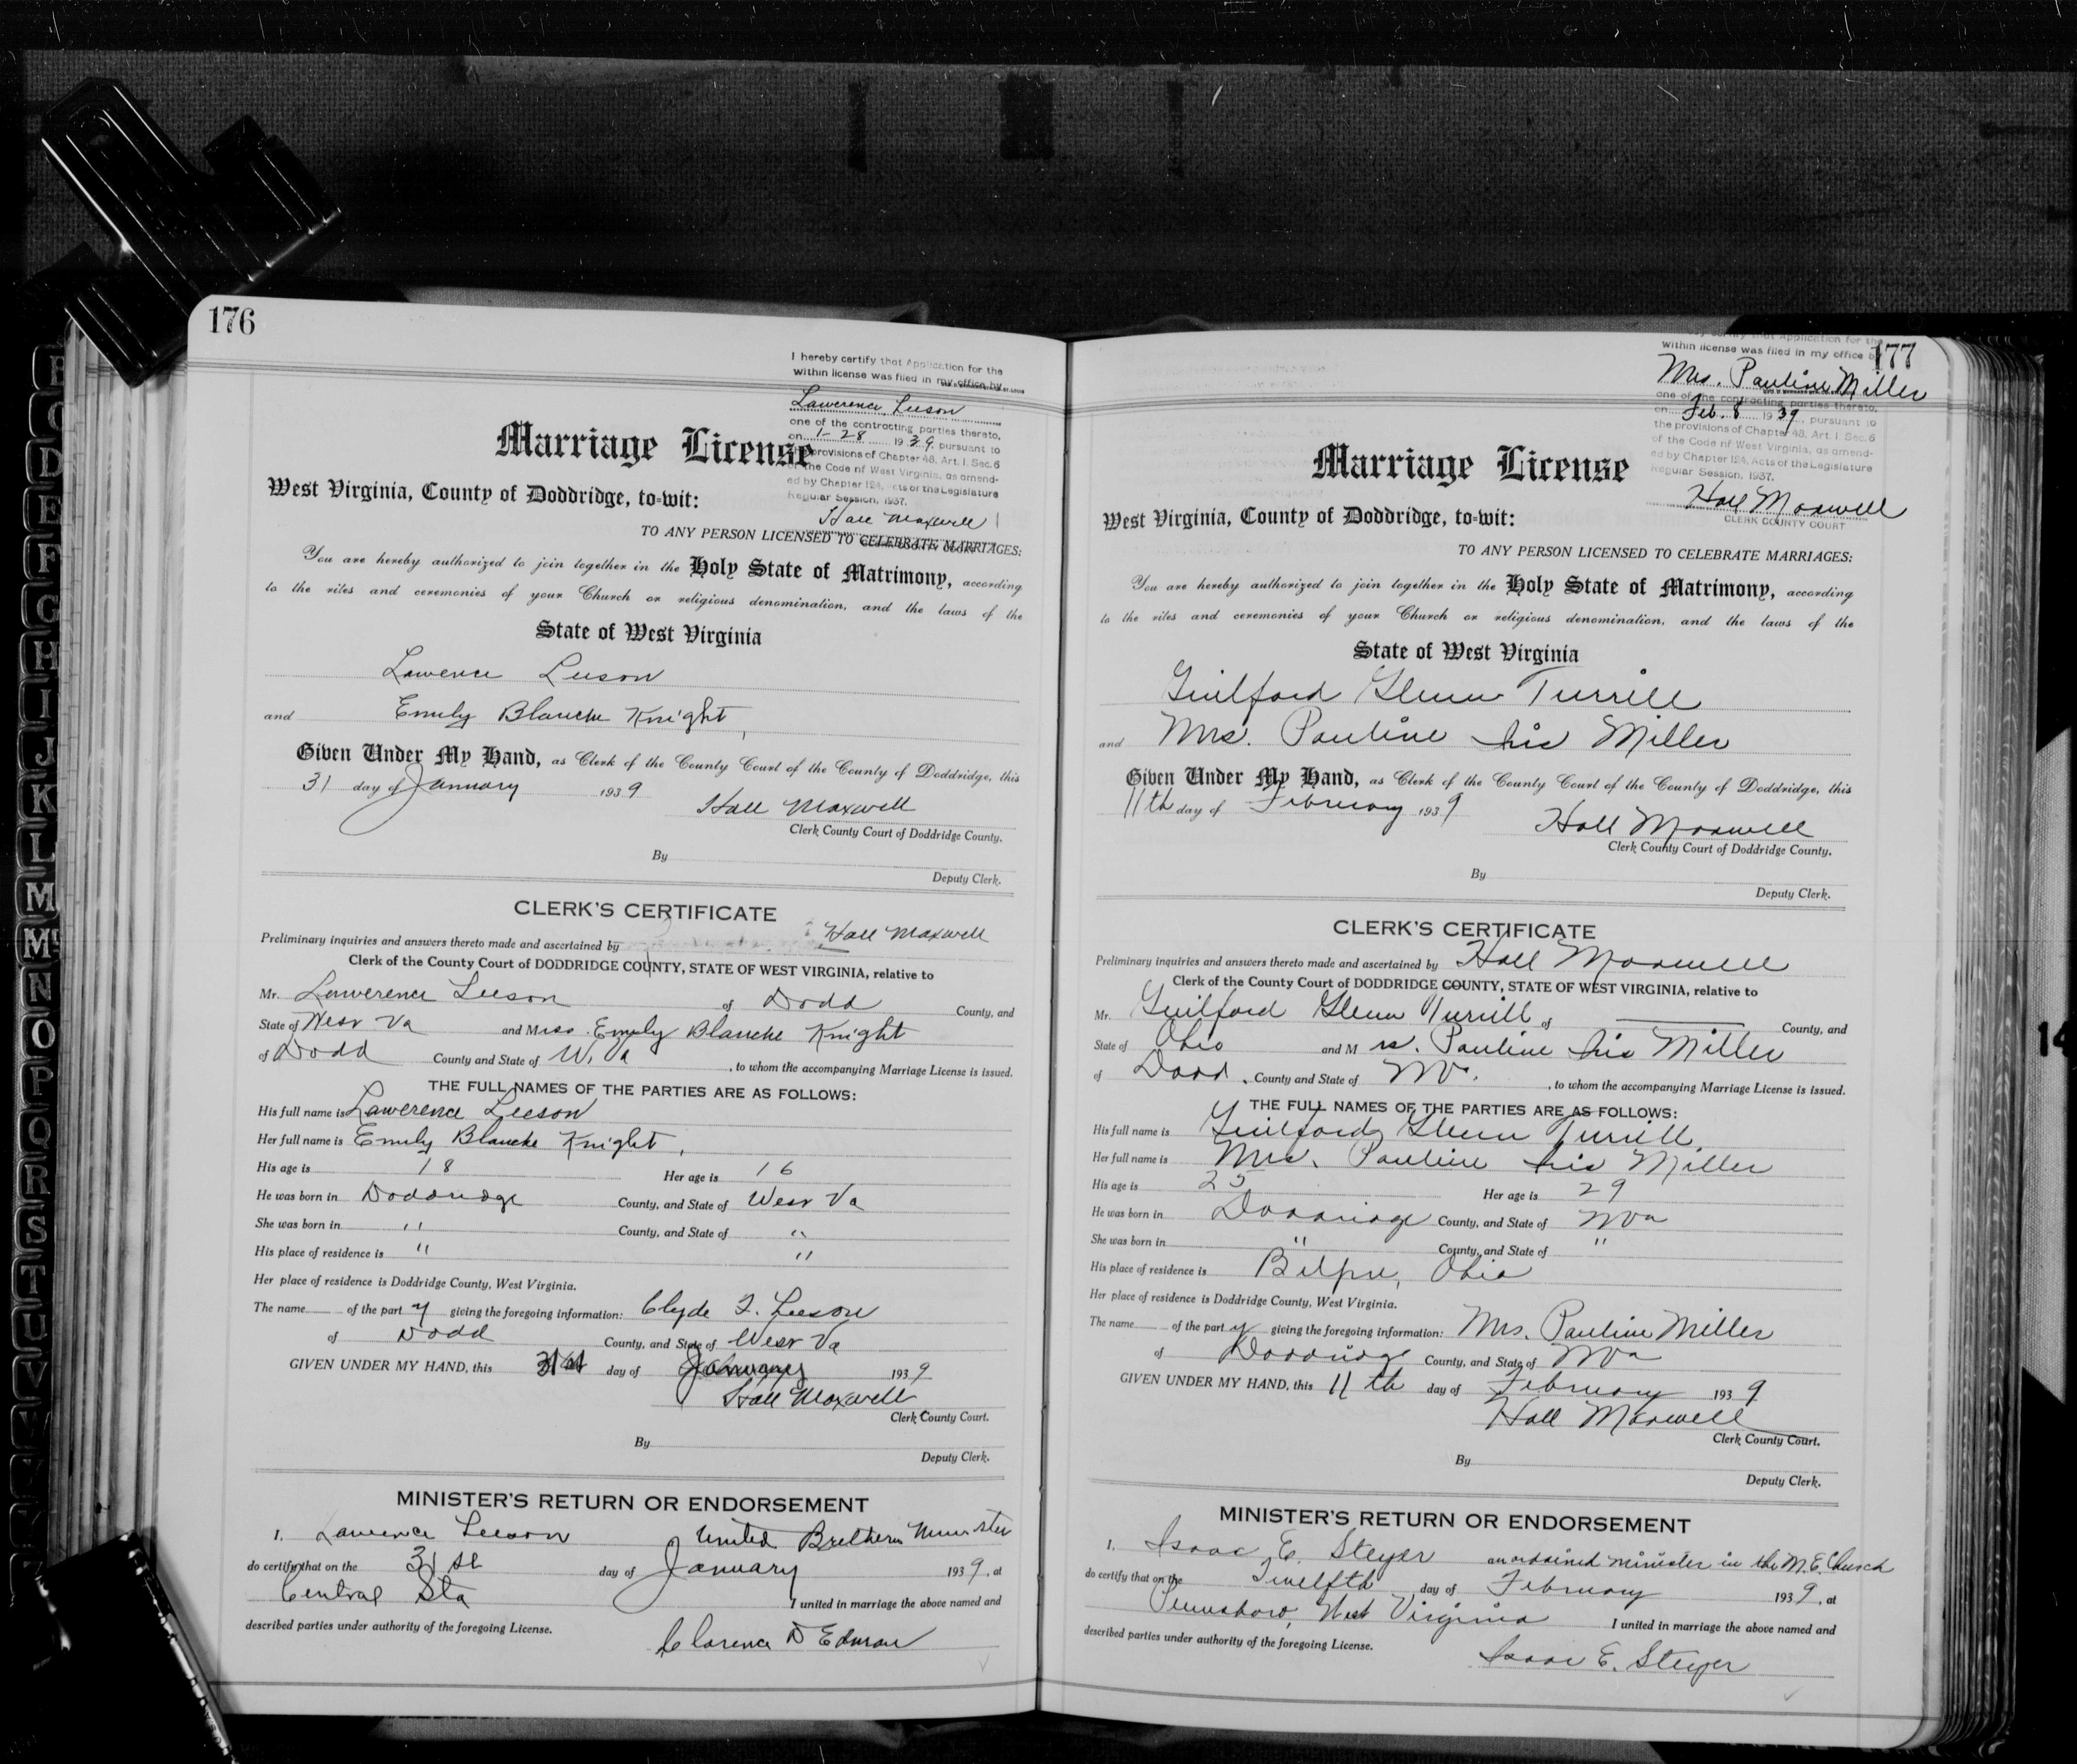 176
I hereby certify that Application for the
within license was filed in my office by
Lawerence Leeson
one of the contracting parties thereto,
on 1-28 1939, pursuant to
the provisions of Chapter 48, Art. 1. Sec. 6
of the Code of West Virginia, as amend-
ed by Chapter 124, Acts of the Legislature
Regular Session, 1937.
Hall Maxwell
Marriage License
West Virginia, County of Doddridge, to-wit:
TO ANY PERSON LICENSED TO CELEBRATE MARRIAGES:
You are hereby authorized to join together in the Holy State of Matrimony, according
to the rites and ceremonies of your Church or religious denomination, and the laws of the
State of West Virginia
Lawrence Leeson
and Emily Blanche Knight,
Given Under My Hand, as Clerk of the County Court of the County of Doddridge, this
31 day of January 1939
Hall Maxwell
Clerk County Court of Doddridge County.
By
Deputy Clerk.
CLERK'S CERTIFICATE
Preliminary inquiries and answers thereto made and ascertained by Hall Maxwell
Clerk of the County Court of DODDRIDGE COUNTY, STATE OF WEST VIRGINIA, relative to
Mr. Lawerence Leeson of Dodd County, and
State of West Va and Miss Emily Blanche Knight
of Dodd County and State of W. Va, to whom the accompanying Marriage License is issued.
THE FULL NAMES OF THE PARTIES ARE AS FOLLOWS:
His full name is Lawerence Leeson
Her full name is Emily Blanche Knight,
His age is 18 Her age is 16
He was born in Doddridge County, and State of West Va
She was born in " County, and State of "
His place of residence is " "
Her place of residence is Doddridge County, West Virginia.
The name of the party giving the foregoing information: Clyde F. Leeson
of Dodd County, and State of West Va
GIVEN UNDER MY HAND, this 31st day of January 1939
Hall Maxwell
Clerk County Court.
By
Deputy Clerk.
MINISTER'S RETURN OR ENDORSEMENT
I, Lawrence Leeson United Brethern Minister
do certify that on the 31st day of January 1939, at
Central Sta I united in marriage the above named and
described parties under authority of the foregoing License.
Clarence D Edman
177
Application for the
within license was filed in my office by
Mrs. Pauline Miller
one of the contracting parties thereto,
on Feb. 8 1939 pursuant to
the provisions of Chapter 48, Art. 1. Sec. 6
of the Code of West Virginia, as amend-
ed by Chapter 124, Acts of the Legislature
Regular Session, 1937.
Hall Maxwell
CLERK COUNTY COURT
Marriage License
West Virginia, County of Doddridge, to-wit:
TO ANY PERSON LICENSED TO CELEBRATE MARRIAGES:
You are hereby authorized to join together in the Holy State of Matrimony, according
to the rites and ceremonies of your Church or religious denomination, and the laws of the
State of West Virginia
Guilford Glenn Turrill
and Mrs. Pauline Miller
Given Under My Hand, as Clerk of the County Court of the County of Doddridge, this
11th day of February 1939
Hall Maxwell
Clerk County Court of Doddridge County.
By
Deputy Clerk.
CLERK'S CERTIFICATE
Preliminary inquiries and answers thereto made and ascertained by Hall Maxwell
Clerk of the County Court of DODDRIDGE COUNTY, STATE OF WEST VIRGINIA, relative to
Mr. Guilford Glenn Turrill of County, and
State of Ohio and Mrs. Pauline Miller
of Dodd, County and State of WVa., to whom the accompanying Marriage License is issued.
THE FULL NAMES OF THE PARTIES ARE AS FOLLOWS:
His full name is Guilford Glenn Turrill,
Her full name is Mrs. Pauline Miller
His age is 25 Her age is 29
He was born in Doddridge County, and State of WVa
She was born in " County, and State of "
His place of residence is Belpre, Ohio
Her place of residence is Doddridge County, West Virginia.
The name of the party giving the foregoing information: Mrs. Pauline Miller
of Doddridge County, and State of WVa
GIVEN UNDER MY HAND, this 11th day of February 1939
Hall Maxwell
Clerk County Court.
By
Deputy Clerk.
MINISTER'S RETURN OR ENDORSEMENT
I, Isaac E. Steyer an ordained minister in the M.E. Church
do certify that on the Twelfth day of February 1939, at
Pennsboro, West Virginia I united in marriage the above named and
described parties under authority of the foregoing License.
Isaac E. Steyer